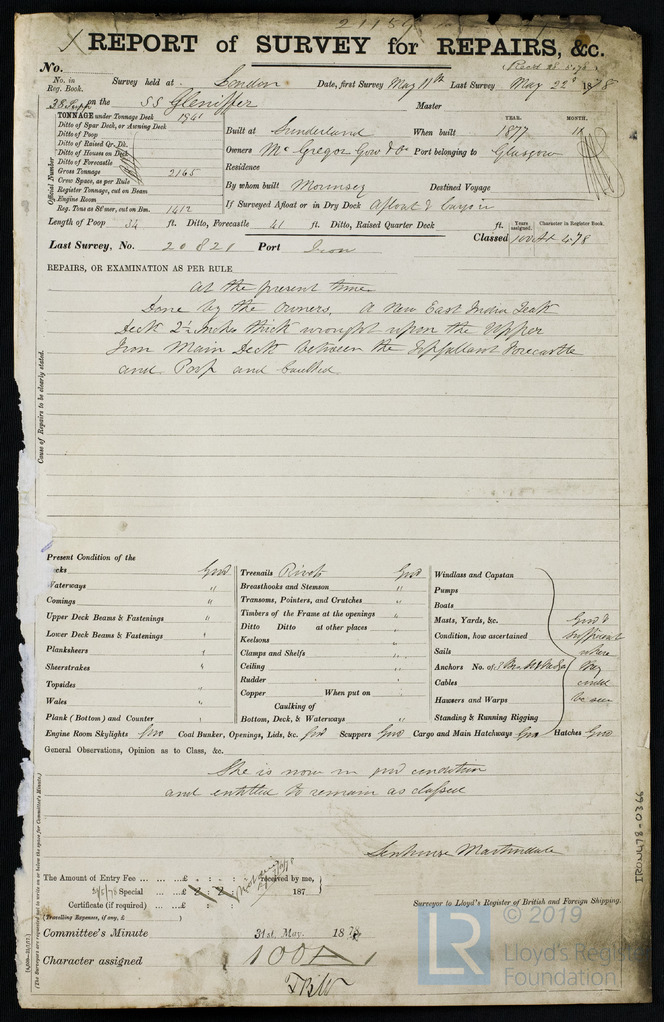 REPORT of SURVEY for REPAIRS, &c.
No.
No. in Reg. Book.
Survey held at London Date, first Survey May 11th Last Survey May 22d 1878
on the SS Gleniffer Master
Official Number
TONNAGE under Tonnage Deck 1941
Ditto of Spar Deck, or Awning Deck
Ditto of Poop
Ditto of Raised Qr. Dk.
Ditto of Houses on Deck
Ditto of Forecastle
Gross Tonnage 2165
Crew Space, as per Rule
Register Tonnage, cut on Beam
Engine Room
Reg. Tons as St'mer, cut on Bm. 1412
YEAR. MONTH.
Built at Sunderland When built 1877
Owners McGregor Gow & Co Port belonging to Glasgow
Residence
By whom built Mounsey Destined Voyage
If Surveyed Afloat or in Dry Dock Afloat &
Length of Poop 34 ft. Ditto, Forecastle 41 ft. Ditto, Raised Quarter Deck ft.
Years assigned. Character in Register Book.
Last Survey, No. 20821 Port Iron Classed 100 A1 4.78
REPAIRS, OR EXAMINATION AS PER RULE
Cause of Repairs to be clearly stated.
at the present time
Done by the owners, A new East India Teak
Deck 2½ inches thick wrought upon the Upper
Iron Main Deck between the Topgallant Forecastle
and Poop and Caulked.
Present Condition of the
Decks Good
Waterways "
Comings "
Upper Deck Beams & Fastenings "
Lower Deck Beams & Fastenings "
Planksheers "
Sheerstrakes "
Topsides "
Wales "
Plank (Bottom) and Counter "
Treenails Rivets Good
Breasthooks and Stemson "
Transoms, Pointers, and Crutches "
Timbers of the Frame at the openings "
Ditto Ditto at other places "
Keelsons "
Clamps and Shelfs "
Ceiling "
Rudder "
Copper When put on
Caulking of
Bottom, Deck, & Waterways "
Windlass and Capstan
Pumps
Boats
Masts, Yards, &c.
Condition, how ascertained
Sails
Anchors No. of
Cables
Hawsers and Warps
Standing & Running Rigging
Good &
sufficient
where
they
could
be seen
Engine Room Skylights Good Coal Bunker, Openings, Lids, &c. Good Scuppers Good Cargo and Main Hatchways Good Hatches Good
General Observations, Opinion as to Class, &c.
She is now in good condition
and entitled to remain as classed
Senhouse Martindale
Surveyor to Lloyd's Register of British and Foreign Shipping.
The Amount of Entry Fee ... £ : : received by me,
Special ... £ 2 : 2 : 187
Certificate (if required) ... £ : :
(Travelling Expenses, if any, £ )
Committee's Minute 31st May. 1878
Character assigned 100A1
(The Surveyors are requested not to write on or below the space for Committee's Minute.)
IRON478-0366
LR
© 2019
Lloyd's Register
Foundation